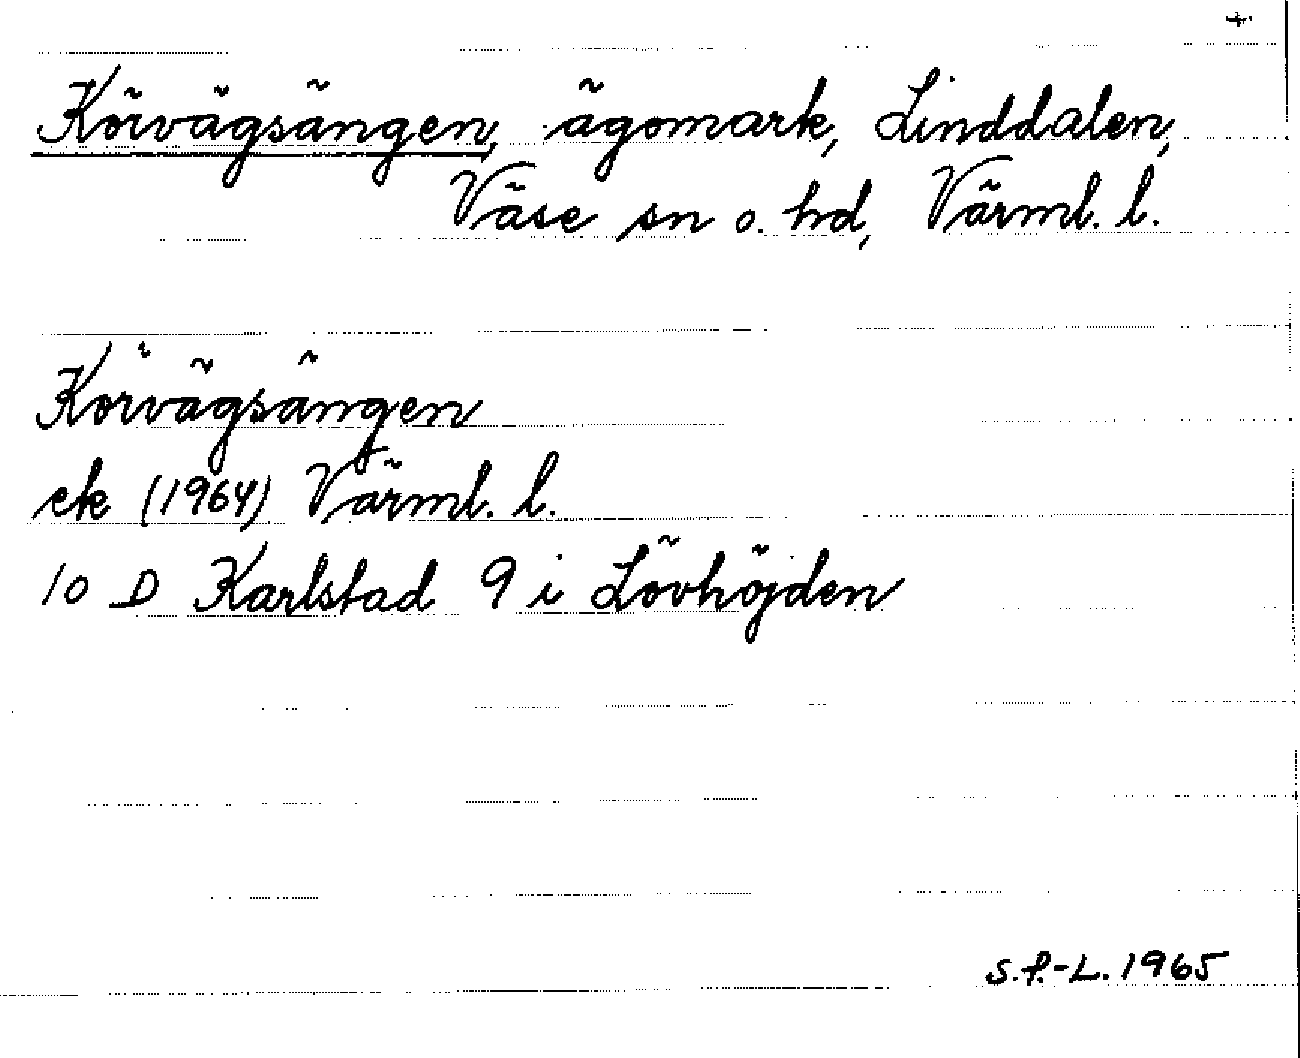 +
Körvägsängen, ägomark, Linddalen,
Väse sn o. hd, Värml. l.
Körvägsängen
ek (1964) Värml. l.
10 D Karlstad 9 i Lövhöjden
S.P.-L. 1965